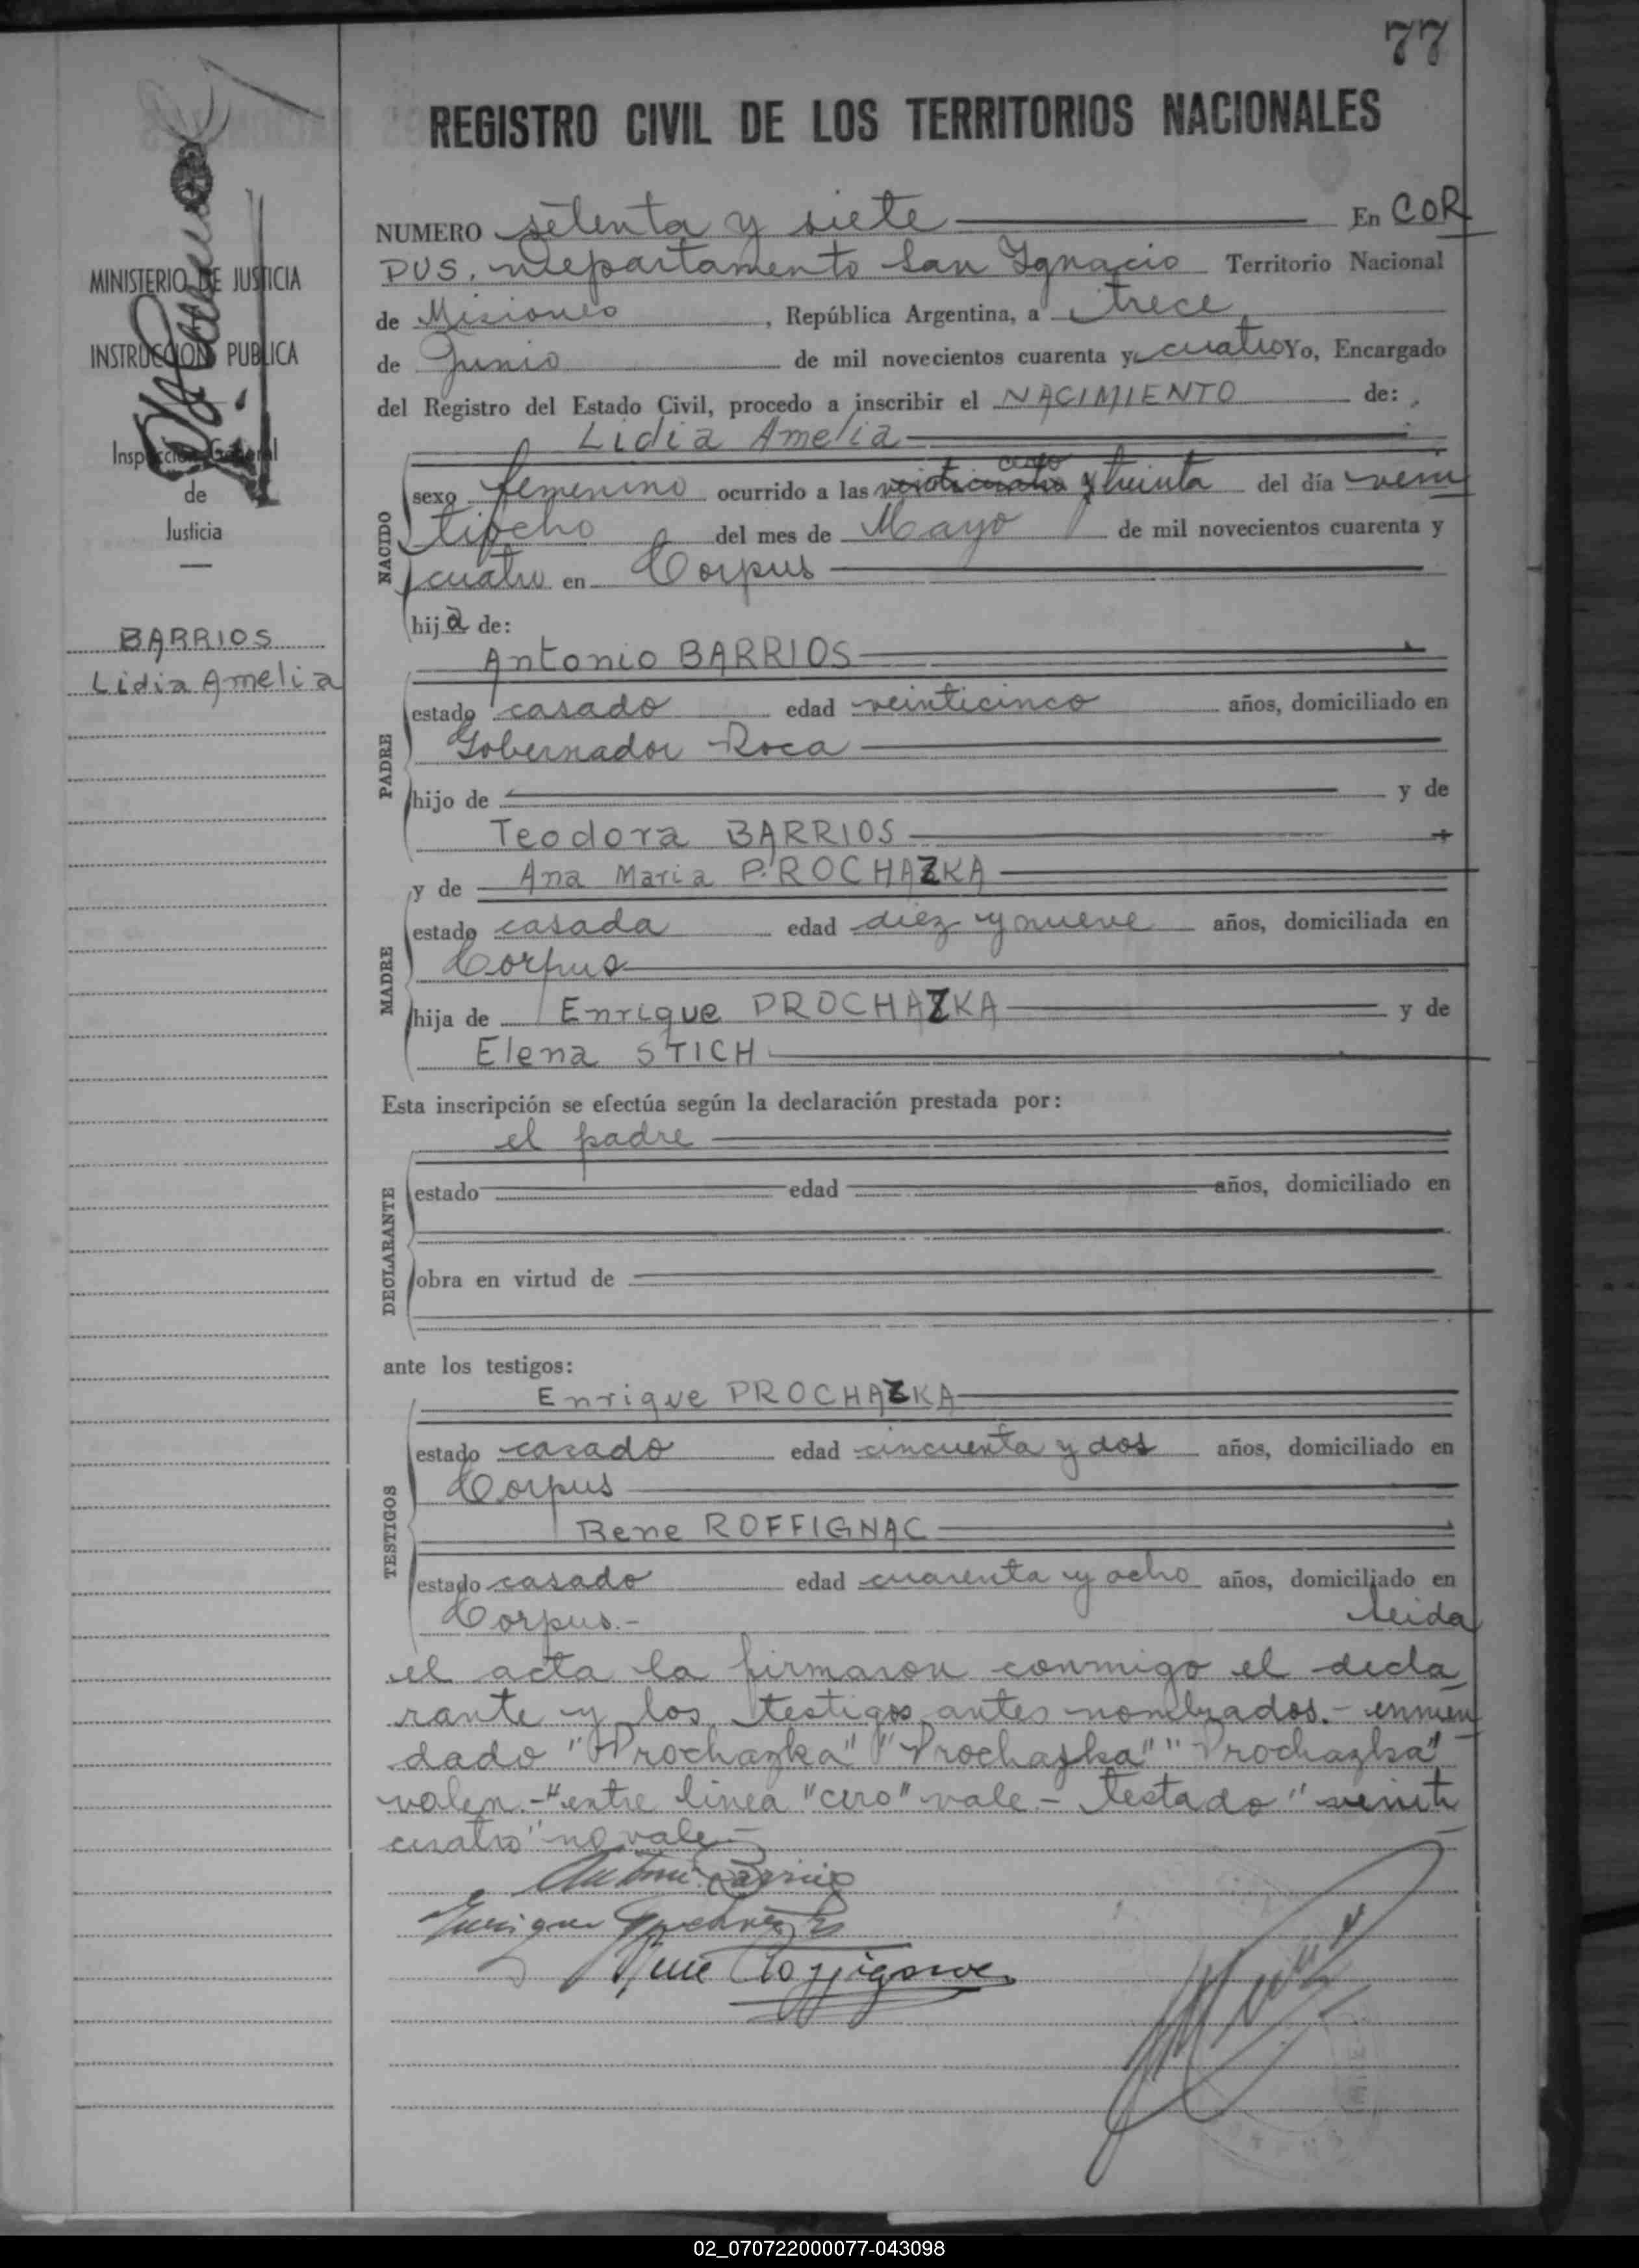 77
REGISTRO CIVIL DE LOS TERRITORIOS NACIONALES
MINISTERIO DE JUSTICIA
INSTRUCCION PUBLICA
Inspección General
de
Justicia
BARRIOS
Lidia Amelia
NUMERO setenta y siete En COR
PUS, Departamento San Ignacio Territorio Nacional
de Misiones, República Argentina, a trece
de Junio de mil novecientos cuarenta y cuatro Yo, Encargado
del Registro del Estado Civil, procedo a inscribir el NACIMIENTO de:
Lidia Amelia
NACIDO
cero
sexo femenino ocurrido a las veinticuatro y treinta del día vein
tiocho del mes de Mayo de mil novecientos cuarenta y
cuatro en Corpus
hija de:
PADRE
Antonio BARRIOS
estado casado edad veinticinco años, domiciliado en
Gobernador Roca
hijo de y de
Teodora BARRIOS
MADRE
y de Ana Maria PROCHAZKA
estado casada edad diez y nueve años, domiciliada en
Corpus
hija de Enrique PROCHAZKA y de
Elena STICH
Esta inscripción se efectúa según la declaración prestada por:
el padre
DECLARANTE
estado edad años, domiciliado en
obra en virtud de
ante los testigos:
TESTIGOS
Enrique PROCHAZKA
estado casado edad cincuenta y dos años, domiciliado en
Corpus
Rene ROFFIGNAC
estado casado edad cuarenta y ocho años, domiciliado en
Corpus.- Leida
el acta la firmaron conmigo el decla
rante y los testigos antes nombrados.- enmen
dado "Prochazka" "Prochazka" "Prochazka"
valen.- "entre linea "cero" vale.- testado "veinti
cuatro" no vale.-
Antonio Barrios
Enrique Prochazka
René Roffignac
02_070722000077-043098